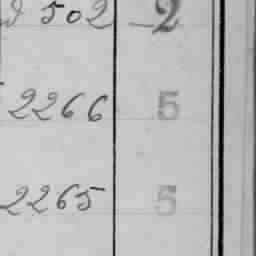 502 2
2266 5
2265 5